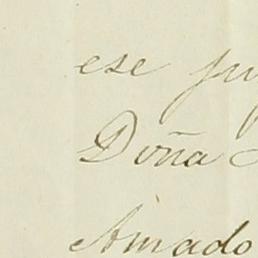 ese
Doña
Amado